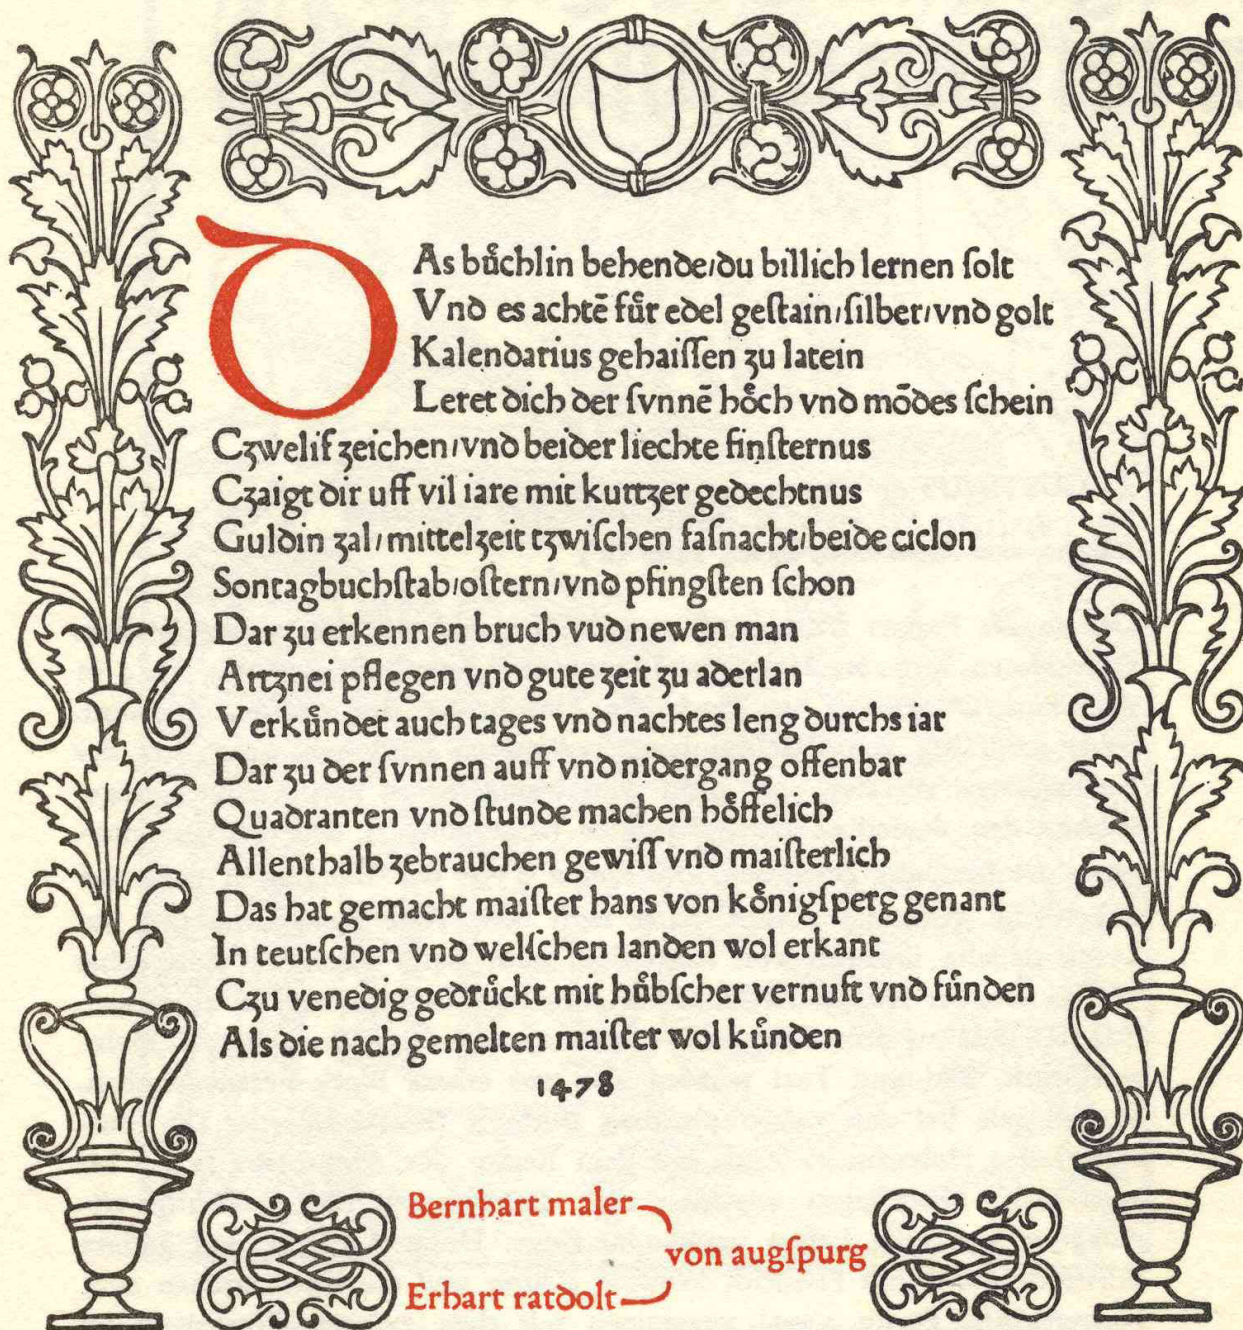 DAs bůchlin behende/du billich lernen ſolt
Vnd es achtē fůr edel geſtain/ſilber/vnd golt
Kalendarius gehaiſſen zu latein
Leret dich der ſvnnē hôch vnd mōdes ſchein
Czwelif zeichen/vnd beider liechte finſternus
Czaigt dir uff vil iare mit kurtzer gedechtnus
Guldin zal/mittelzeit tzwiſchen faſnacht/beide ciclon
Sontagbuchſtab/oſtern/vnd pfingſten ſchon
Dar zu erkennen bruch vud newen man
Artznei pflegen vnd gute zeit zu aderlan
Verkůndet auch tages vnd nachtes leng durchs iar
Dar zu der ſvnnen auff vnd nidergang offenbar
Quadranten vnd ſtunde machen hoͤffelich
Allenthalb zebrauchen gewiſſ vnd maiſterlich
Das hat gemacht maiſter hans von koͤnigſperg genant
In teutſchen vnd welſchen landen wol erkant
Czu venedig gedrůckt mit hůbſcher vernuft vnd fůnden
Als die nach gemelten maiſter wol kůnden
1478
Bernhart maler
von augſpurg
Erhart ratdolt